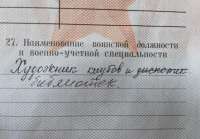 27. Наименование воинской должности
и военно-учетной специальности
Художник клубов и дискотек
библиотек